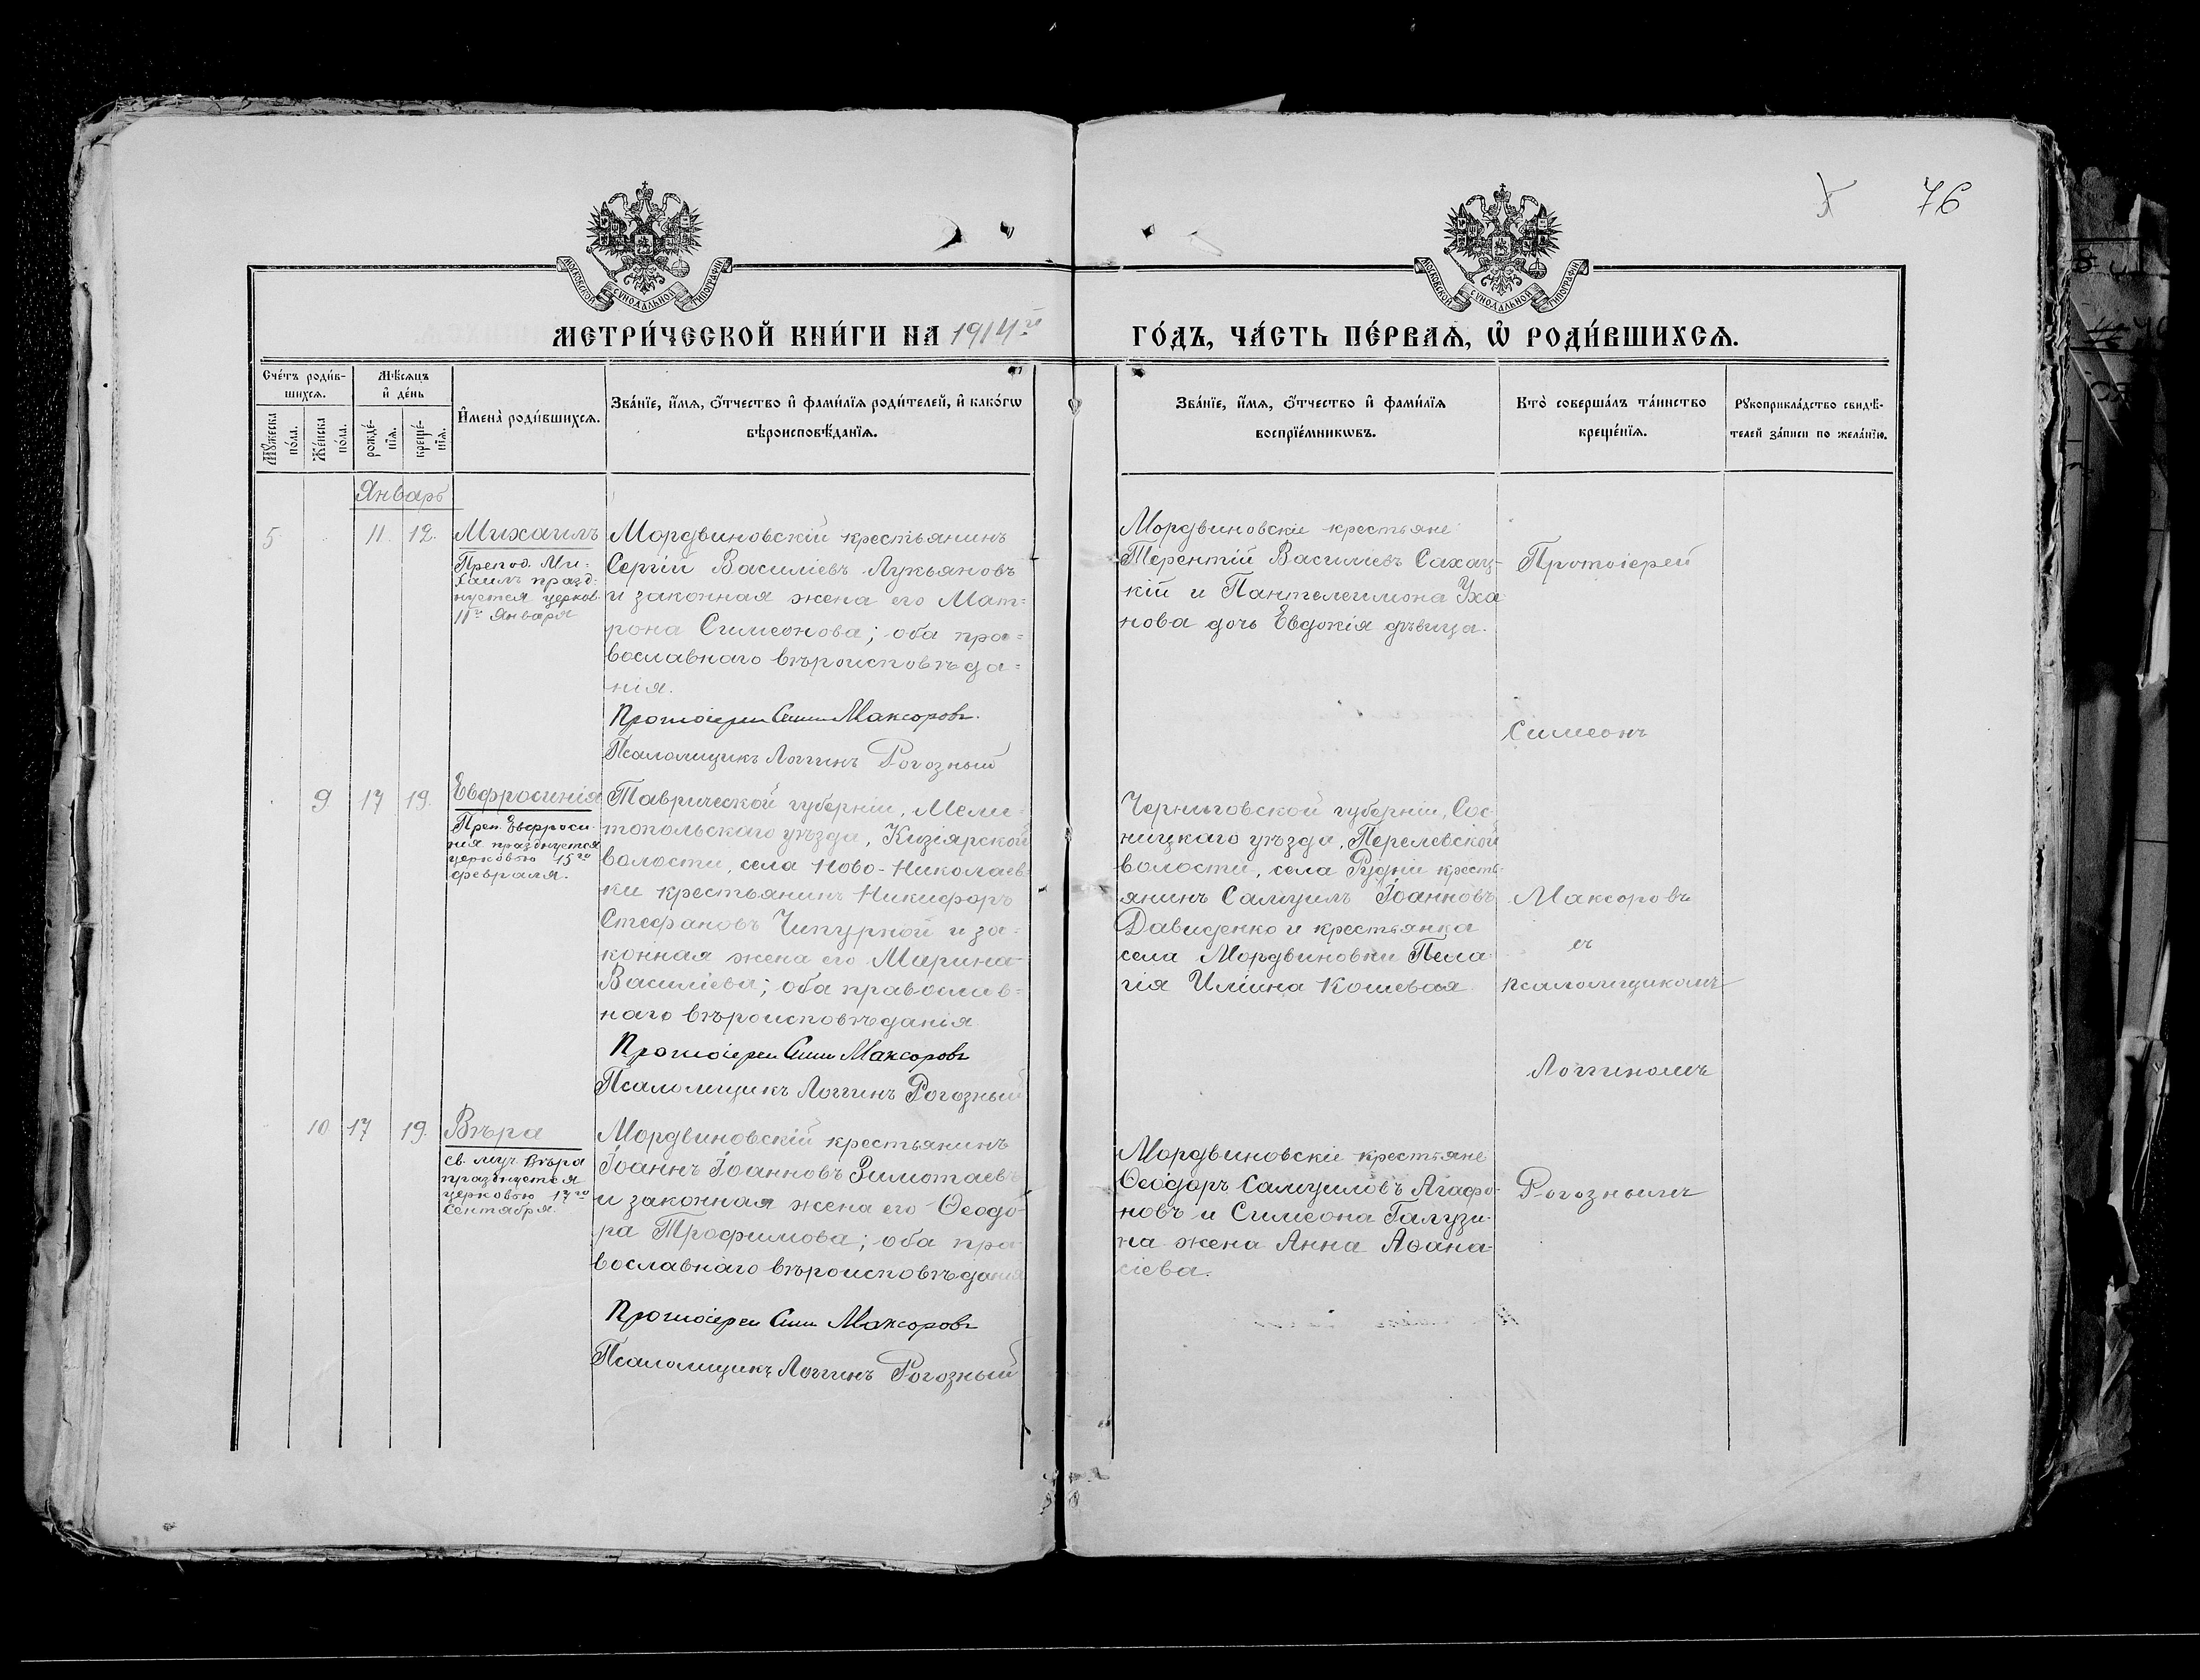 76
МОСКОВСКОЙ СѴНОДАЛЬНОЙ ТИПОГРАФІИ
МОСКОВСКОЙ СѴНОДАЛЬНОЙ ТИПОГРАФІИ
МЕТРИ́ЧЕСКОЙ КНИ́ГИ НА 1914й
ГО́ДЪ, ЧА́СТЬ ПЕ́РВАѦ, Ѿ РОДИ́ВШИХСѦ.
Сче́тъ роди́в-
шихсѧ.
Мѣ́сѧцъ
и҆ де́нь
Мꙋ́жеска
по́ла.
Же́нска
по́ла.
рожде́-
нїѧ.
креще́-
нїѧ.
И҆мена̀ роди́вшихсѧ.
Зва́нїе, и҆́мѧ, ѻ҆́тчество и҆ фами́лїѧ роди́телей, и҆ како́гѡ
вѣроисповѣ́данїѧ.
Зва́нїе, и҆́мѧ, ѻ҆́тчество и҆ фами́лїѧ
воспрїе́мникѡвъ.
Кто̀ соверша́лъ та́инство
креще́нїѧ.
Рꙋкоприкла́дство свидѣ́-
телей за́писи по жела́нїю.
Январь
5 11. 12. Михаилъ
Препод. Ми-
хаилъ празд-
нуется церков.
11го Января
Мордвиновскій крестьянинъ
Сергій Василіевъ Лукьяновъ
и законная жена его Мат=
рона Симеонова; оба пра=
вославнаго вѣроисповѣда=
нія.
Протоіерей Сим Максоровъ.
Псаломщикъ Логгинъ Рогозный
Мордвиновскіе крестьяне
Терентій Василіевъ Сахац-
кій и Пантелеимона Уха-
нова дочь Евдокія дѣвица.
9 17 19. Евфросинія
Преп. Евфроси-
нія празднуется
церковью 15го
февраля.
Таврической губерніи, Мели-
топольскаго уѣзда, Кизіярской
волости, села Ново-Николаев-
ки крестьянинъ Никифоръ
Стефановъ Чипурной и за=
конная жена его Марина
Василіева; оба православ=
наго вѣроисповѣданія
Протоіерей Сим Максоровъ
Псаломщикъ Логгинъ Рогозный
Черниговской губерніи, Сос-
ницкаго уѣзда,
волости, села Рудни кресть-
янинъ Самуилъ Іоанновъ
Давиденко и крестьянка
села Мордвиновки Пела-
гія Иліина Кошевая
10 17 19. Вѣра
Св. муч. Вѣра
празднуется
церковью 17го
Сентября.
Мордвиновскій крестьянинъ
Іоаннъ Іоанновъ Зимотаевъ
и законная жена его Ѳеодо-
ра Трофимова; оба пра-
вославнаго вѣроисповѣданія
Протоіерей Сим Максоровъ
Псаломщикъ Логгинъ Рогозный
Мордвиновскіе крестьяне
Ѳеодоръ Самуиловъ Агафо-
новъ и Симеона Галузи-
на жена Анна Аѳана-
сіева.
Протоіерей
Симеонъ
Максоровъ
съ
псаломщикомъ
Логгиномъ
Рогознымъ